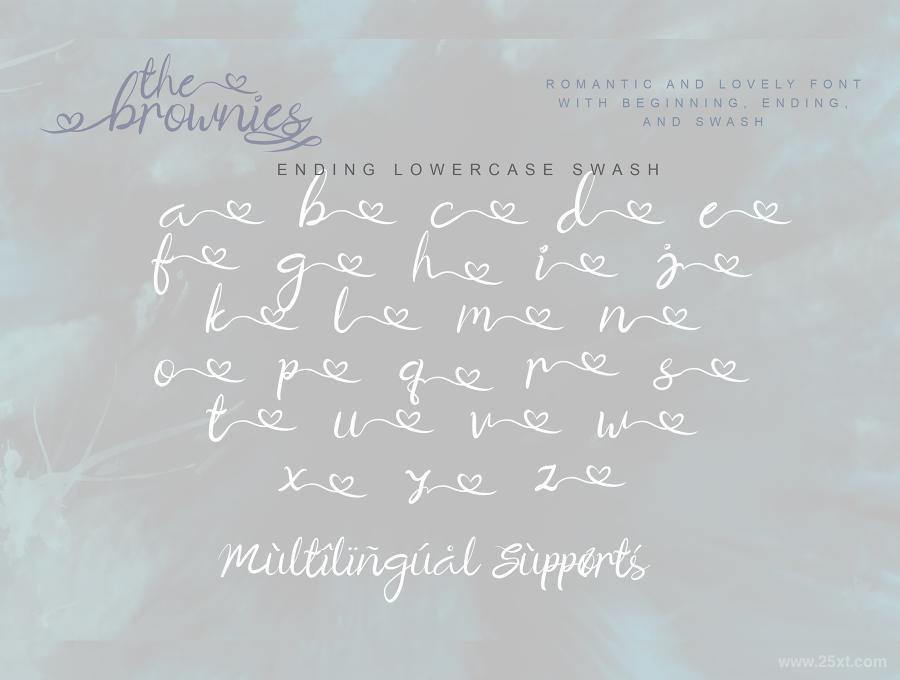 the
brownies
ROMANTIC AND LOVELY FONT
WITH BEGINNING, ENDING,
AND SWASH
ENDING LOWERCASE SWASH
a b c d e
f g h i j
k l m n
o p q r s
t u v w
x y z
Mùltîlïñgúål Sùppørtś
www.25xt.com